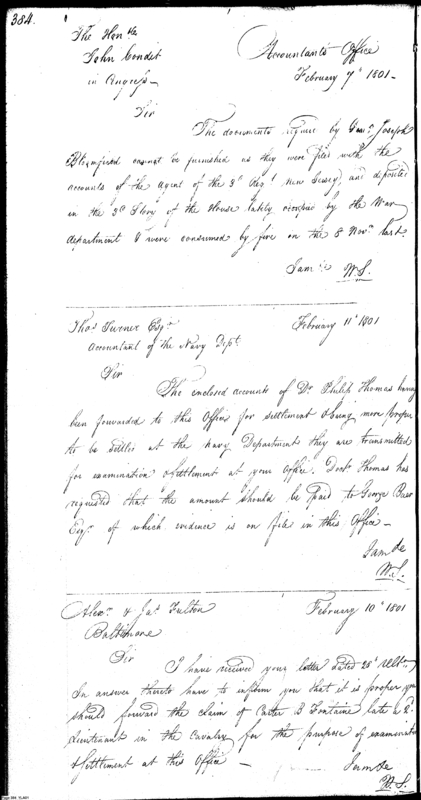 384.
The Honble
John Condit
in Congress –
Accountants Office
February 7th 1801 –
Sir
The documents request by Genl. Joseph
Bloomfield cannot be furnished as they were filed with the
accounts of the agent of the 3d Regt New Jersey and deposited
in the 3d Story of the House lately occupied by the War
department & were consumed by fire on the 8 Novr last.
I am &c W.S.
Thos Turner Esqr
Accountant of the Navy Dept.
February 11th 1801
Sir
The enclosed accounts of Dr Philip Thomas having
been forwarded to this Office for settlement & being more proper
to be settled at the Navy Department they are transmitted
for examination & settlement at your Office. Doctr Thomas has
requested that the amount should be paid to George Baer
Esqr. of which evidence is on file in this Office –
I am &c
W.S.
Alexr & Jas Fulton
Baltimore
February 10th 1801
Sir
I have received your letter dated 25th
In answer thereto have to inform you that it is proper you
should forward the claim of Carter B Fontaine late a
Lieutenant in the Cavalry for the purpose of examination
& settlement at this Office –
I am &c
W.S.